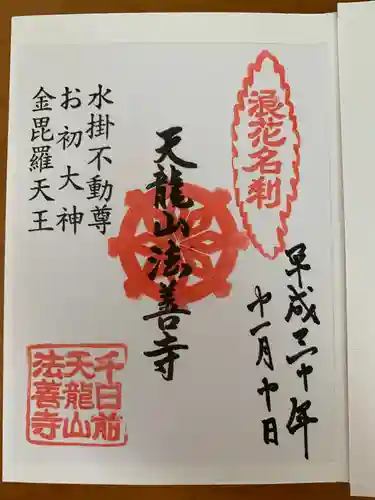 浪花名刹
平成三十年
十一月十日
天龍山法善寺
水掛不動尊
お初大神
金毘羅天王
千日前
天龍山
法善寺